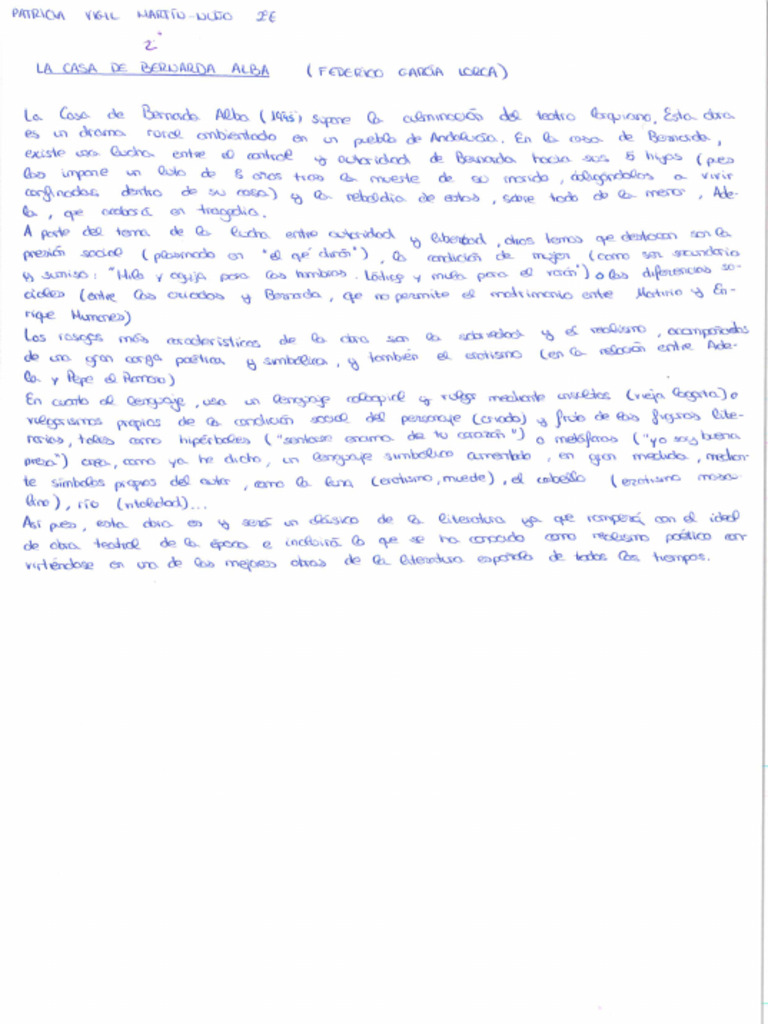 PATRICIA VIGIL MARTÍN-NUÑO 2ºE
2º
LA CASA DE BERNARDA ALBA (FEDERICO GARCÍA LORCA)
La Casa de Bernarda Alba (1945) supone la culminación del teatro lorquiano. Esta obra
es un drama rural ambientado en un pueblo de Andalucía. En la casa de Bernarda,
existe una lucha entre el control y autoridad de Bernarda hacia sus 5 hijas (pues
las impone un luto de 8 años tras la muerte de su marido, obligándolas a vivir
confinadas dentro de su casa) y la rebeldía de estas, sobre todo de la menor, Ade-
la, que acabará en tragedia.
A parte del tema de la lucha entre autoridad y libertad, otros temas que destacan son la
presión social (plasmada en "el qué dirán"), la condición de mujer (como ser secundario
y sumiso: "Hilo y aguja para las hembras. Látigo y mula para el varón") o las diferencias so-
ciales (entre las criadas y Bernarda, que no permite el matrimonio entre Martirio y En-
rique Humanes)
Los rasgos más característicos de la obra son la sobriedad y el realismo, acompañados
de una gran carga poética y simbólica, y también el erotismo (en la relación entre Ade-
la y Pepe el Romano)
En cuanto al lenguaje, usa un lenguaje coloquial y vulgar mediante insultos (vieja lagarta) o
vulgarismos propios de la condición social del personaje (criada) y fruto de las figuras lite-
rarias, tales como hipérboles ("sentarse encima de tu corazón") o metáforas ("yo soy buena
presa") crea, como ya he dicho, un lenguaje simbólico aumentado, en gran medida, median-
te símbolos propios del autor, como la luna (erotismo, muerte), el caballo (erotismo mascu-
lino), río (vitalidad)...
Así pues, esta obra es y será un clásico de la literatura ya que romperá con el ideal
de obra teatral de la época e incluirá lo que se ha conocido como realismo poético con-
virtiéndose en una de las mejores obras de la literatura española de todos los tiempos.